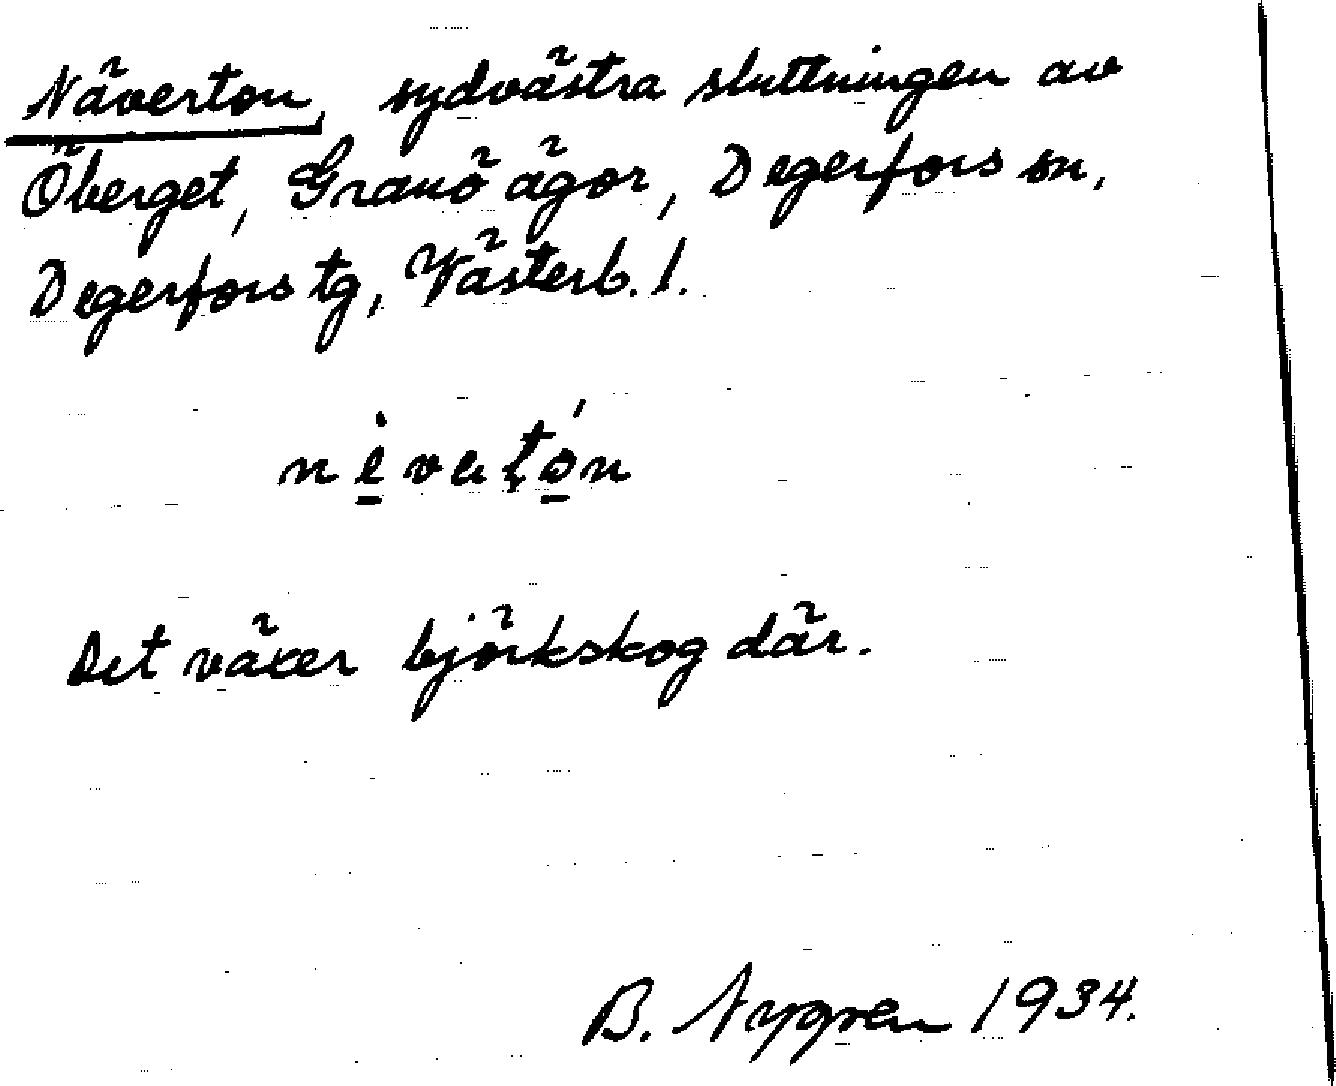 Näverton, sydvästra sluttningen av
Öberget, Granö ägor, Degerfors sn,
Degerfors tg, Västerb. l.
nèvaţón
Det växer björkskog där.
B. Nygren 1934.